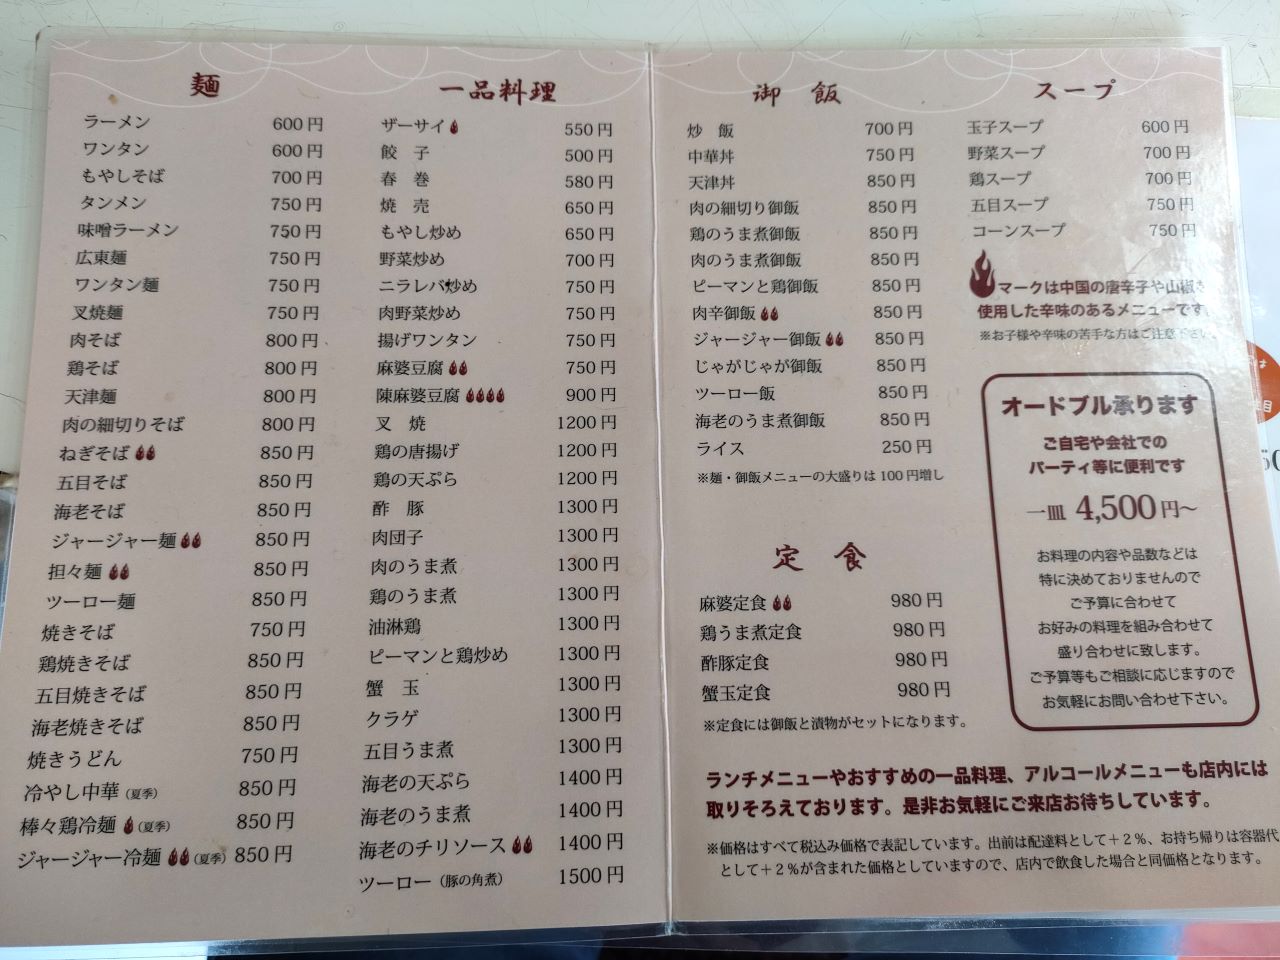 麺
ラーメン 600円
ワンタン 600円
もやしそば 700円
タンメン 750円
味噌ラーメン 750円
広東麺 750円
ワンタン麺 750円
叉焼麺 750円
肉そば 800円
鶏そば 800円
天津麺 800円
肉の細切りそば 800円
ねぎそば 850円
五目そば 850円
海老そば 850円
ジャージャー麺 850円
担々麺 850円
ツーロー麺 850円
焼きそば 750円
鶏焼きそば 850円
五目焼きそば 850円
海老焼きそば 850円
焼きうどん 750円
冷やし中華(夏季) 850円
棒々鶏冷麺(夏季) 850円
ジャージャー冷麺(夏季) 850円
一品料理
ザーサイ 550円
餃子 500円
春巻 580円
焼売 650円
もやし炒め 650円
野菜炒め 700円
ニラレバ炒め 750円
肉野菜炒め 750円
揚げワンタン 750円
麻婆豆腐 750円
陳麻婆豆腐 900円
叉焼 1200円
鶏の唐揚げ 1200円
鶏の天ぷら 1200円
酢豚 1300円
肉団子 1300円
肉のうま煮 1300円
鶏のうま煮 1300円
油淋鶏 1300円
ピーマンと鶏炒め 1300円
蟹玉 1300円
クラゲ 1300円
五目うま煮 1300円
海老の天ぷら 1400円
海老のうま煮 1400円
海老のチリソース 1400円
ツーロー(豚の角煮) 1500円
御飯
炒飯 700円
中華丼 750円
天津丼 850円
肉の細切り御飯 850円
鶏のうま煮御飯 850円
肉のうま煮御飯 850円
ピーマンと鶏御飯 850円
肉辛御飯 850円
ジャージャー御飯 850円
じゃがじゃが御飯 850円
ツーロー飯 850円
海老のうま煮御飯 850円
ライス 250円
※麺・御飯メニューの大盛りは100円増し
定食
麻婆定食 980円
鶏うま煮定食 980円
酢豚定食 980円
蟹玉定食 980円
※定食には御飯と漬物がセットになります。
スープ
玉子スープ 600円
野菜スープ 700円
鶏スープ 700円
五目スープ 750円
コーンスープ 750円
マークは中国の唐辛子や山椒を
使用した辛味のあるメニューです。
※お子様や辛味の苦手な方はご注意下さい。
オードブル承ります
ご自宅や会社での
パーティ等に便利です
一皿 4,500円〜
お料理の内容や品数などは
特に決めておりませんので
ご予算に合わせて
お好みの料理を組み合わせて
盛り合わせに致します。
ご予算等もご相談に応じますので
お気軽にお問い合わせ下さい。
ランチメニューやおすすめの一品料理、アルコールメニューも店内には
取りそろえております。是非お気軽にご来店お待ちしています。
※価格はすべて税込み価格で表記しています。出前は配達料として＋2％、お持ち帰りは容器代
として＋2％が含まれた価格としていますので、店内で飲食した場合と同価格となります。